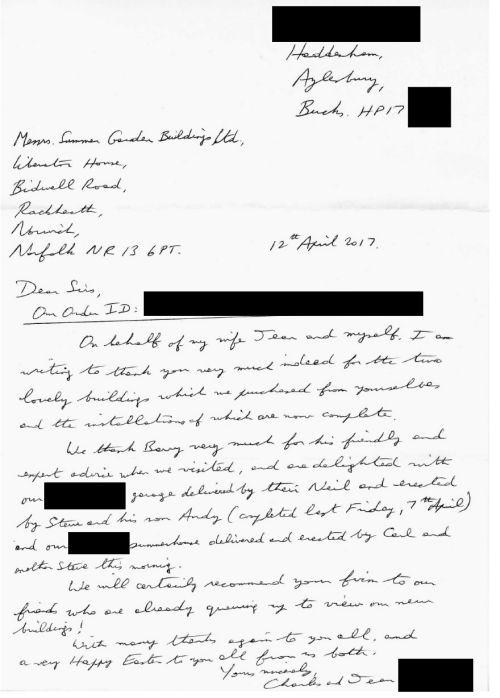 Haddenham,
Aylesbury,
Bucks. HP17
Messrs. Summer Garden Buildings Ltd,
Liberator House,
Bidwell Road,
Rackheath,
Norwich,
Norfolk NR13 6PT.
12th April 2017.
Dear Sirs,
Our Order ID:
On behalf of my wife Jean and myself, I am
writing to thank you very much indeed for the two
lovely buildings which we purchased from yourselves
and the installations of which are now complete.
We thank Barry very much for his friendly and
expert advice when we visited, and are delighted with
our garage delivered by their Neil and erected
by Steve and his son Andy (completed last Friday, 7th April)
and our summerhouse delivered and erected by Carl and
another Steve this morning.
We will certainly recommend your firm to our
friends who are already queuing up to view our new
buildings!
With many thanks again to you all, and
a very Happy Easter to you all from us both.
Yours sincerely,
Charles and Jean